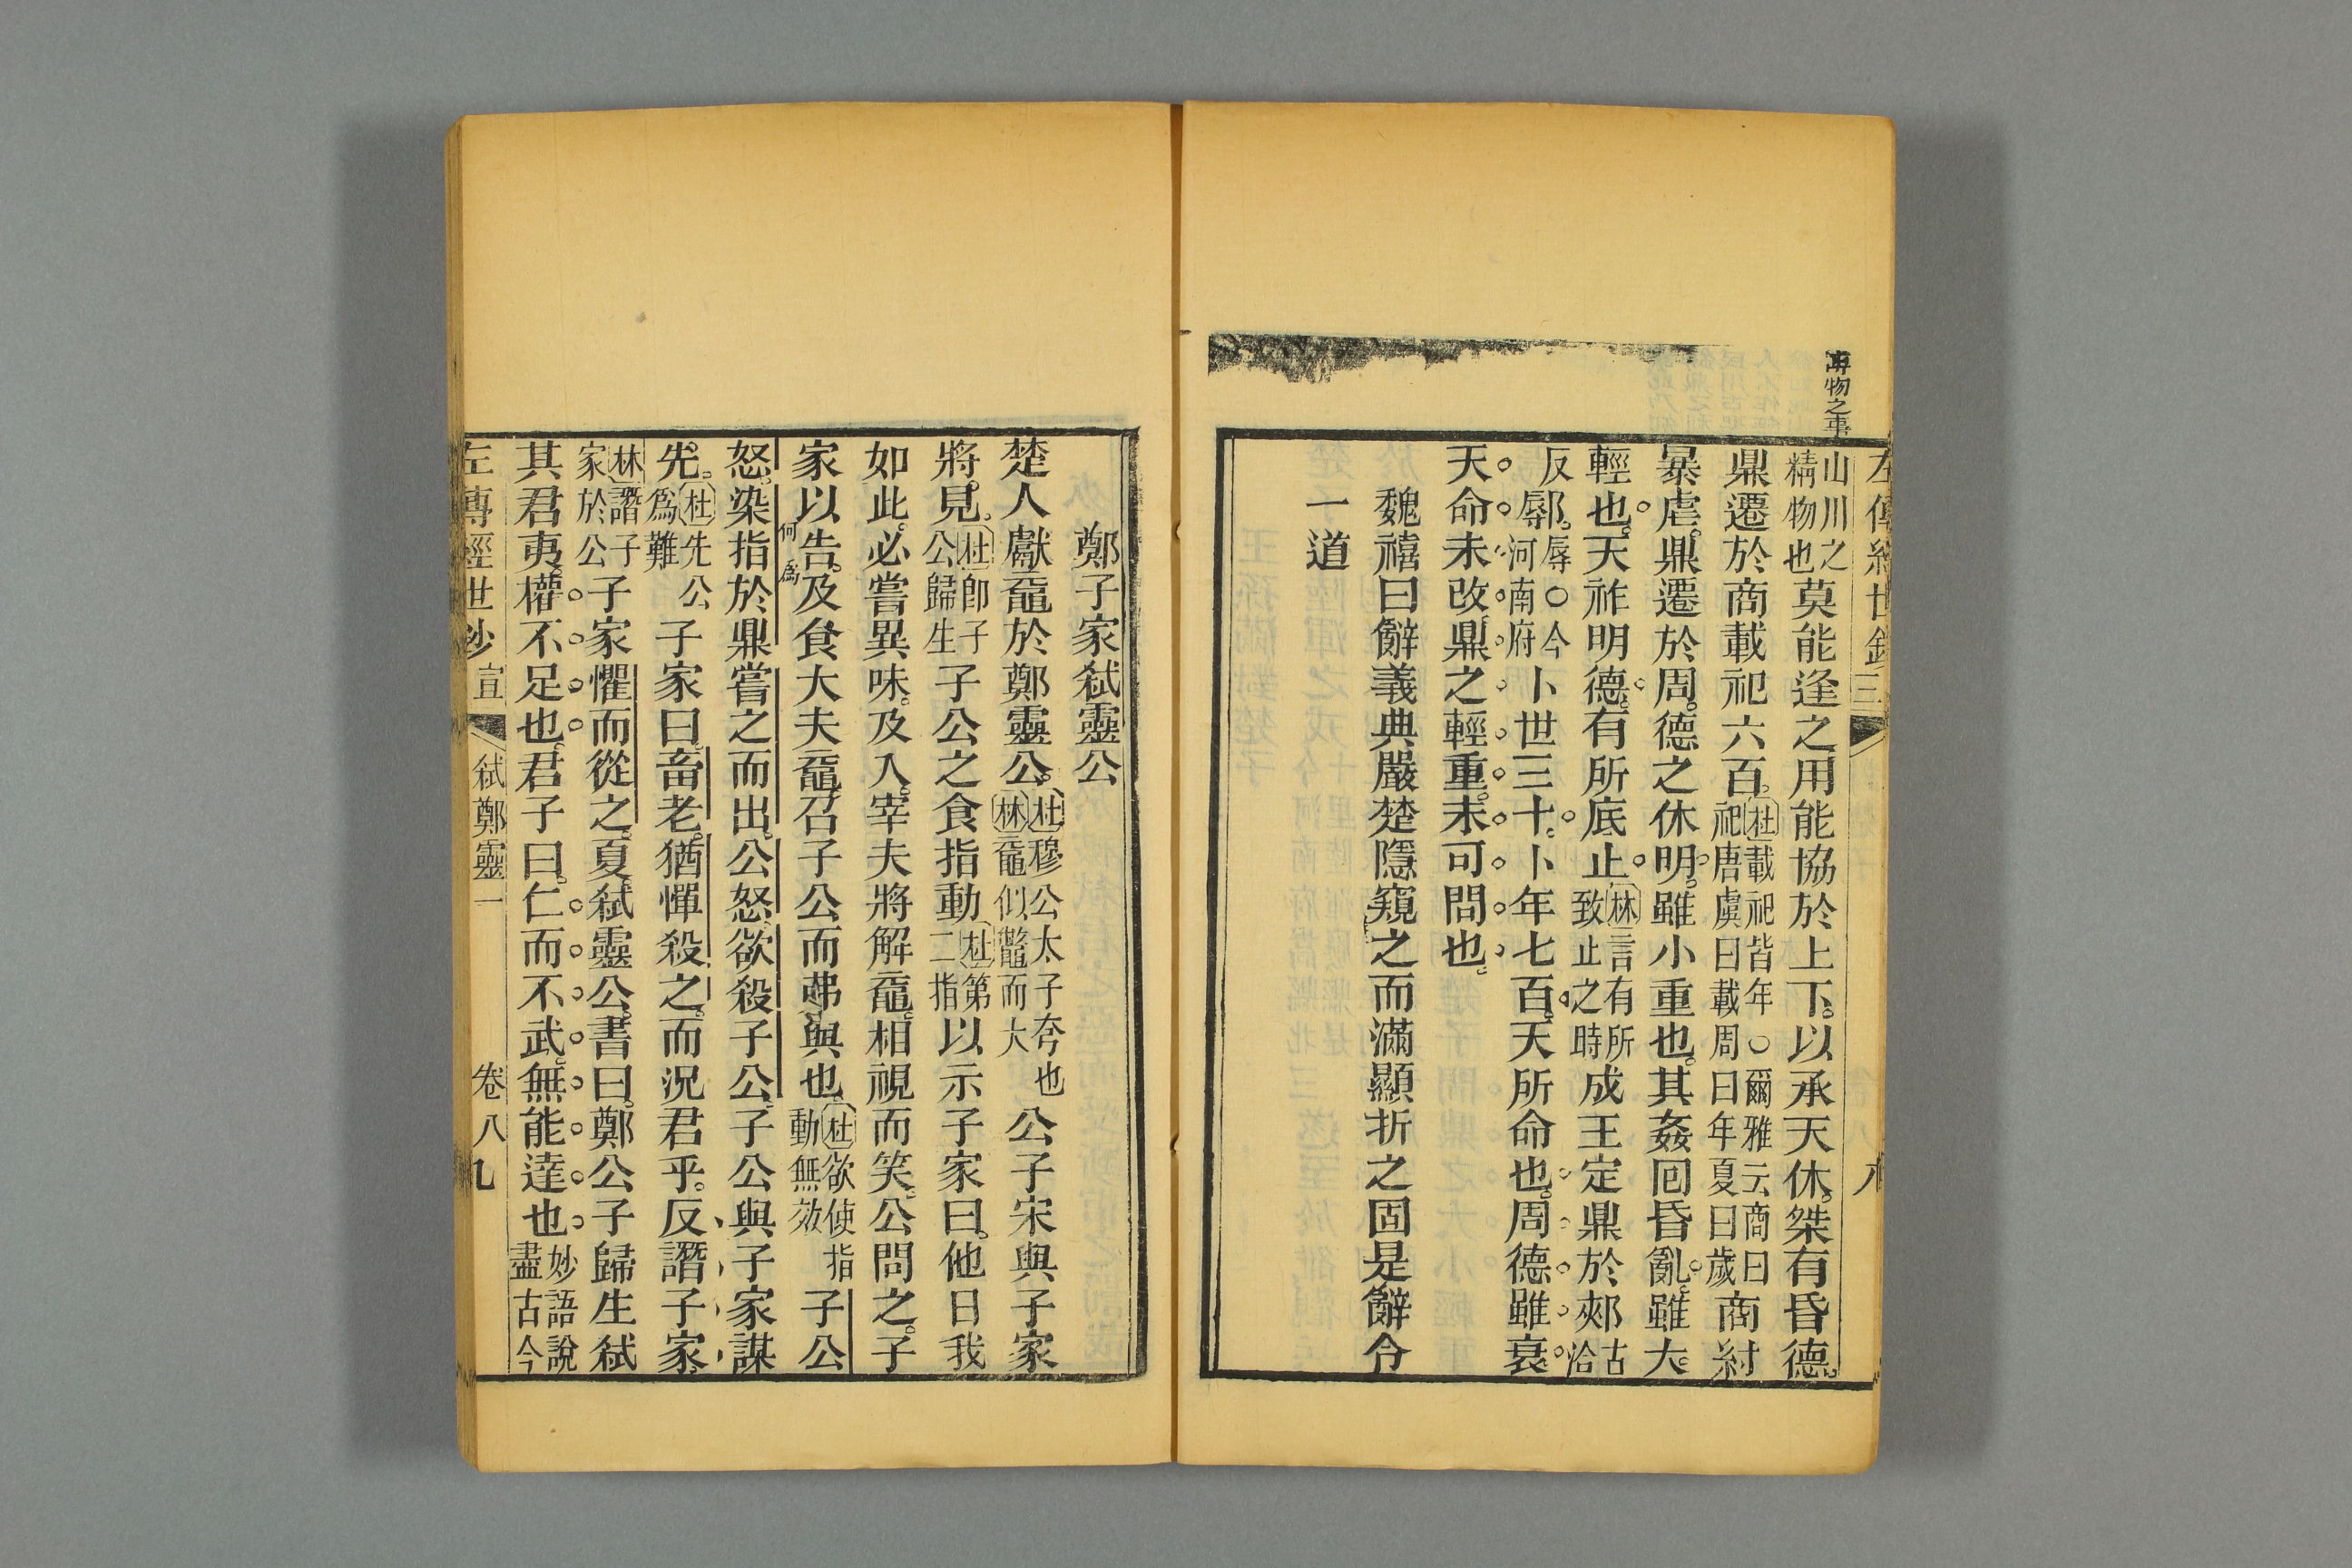 專物之事
左傳經世鈔 三 八
山川之精物也莫能逢之用能協於上下以承天休桀有昏德
鼎遷於商載祀六百杜載祀皆年〇爾雅云商曰祀唐虞曰載周曰年夏曰歲商紂
暴虐鼎遷於周德之休明雖小重也其姦囘昏亂雖大
輕也天祚明德有所底止林言有所致止之時成王定鼎於郟古洽
反鄏辱〇今河南府卜世三十卜年七百天所命也周德雖衰
天命未改鼎之輕重未可問也
魏禧曰辭義典嚴楚隱窺之而滿顯折之固是辭令
一道
鄭子家弑靈公
楚人獻黿於鄭靈公杜穆公太子夸也林黿似鼈而大公子宋與子家
將見杜卽子公歸生子公之食指動杜第二指以示子家曰他日我
如此必嘗異味及入宰夫將解黿相視而笑公問之子
家以告及食大夫黿召子公而弗與也杜欲使指動無效子公
何爲
怒染指於鼎嘗之而出公怒欲殺子公子公與子家謀
先杜先公爲難子家曰畜老猶憚殺之而況君乎反譖子家
林譖子家於公子家懼而從之夏弑靈公書曰鄭公子歸生弑
其君夷權不足也君子曰仁而不武無能達也妙語說盡古今
左傳經世鈔 宣 弑鄭靈一 卷八 九